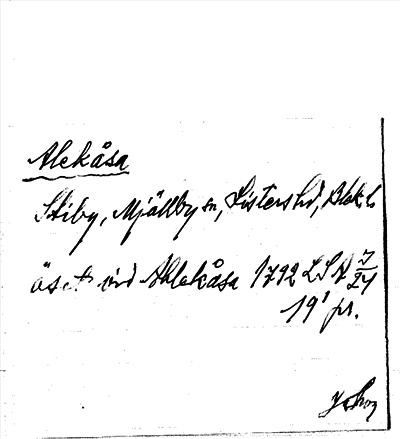 Alekåsa
Stiby, Mjällby sn, Listers hd, Blek. l.
öset vid Ahlekåsa 1792 LSA 7/24
19' pr.